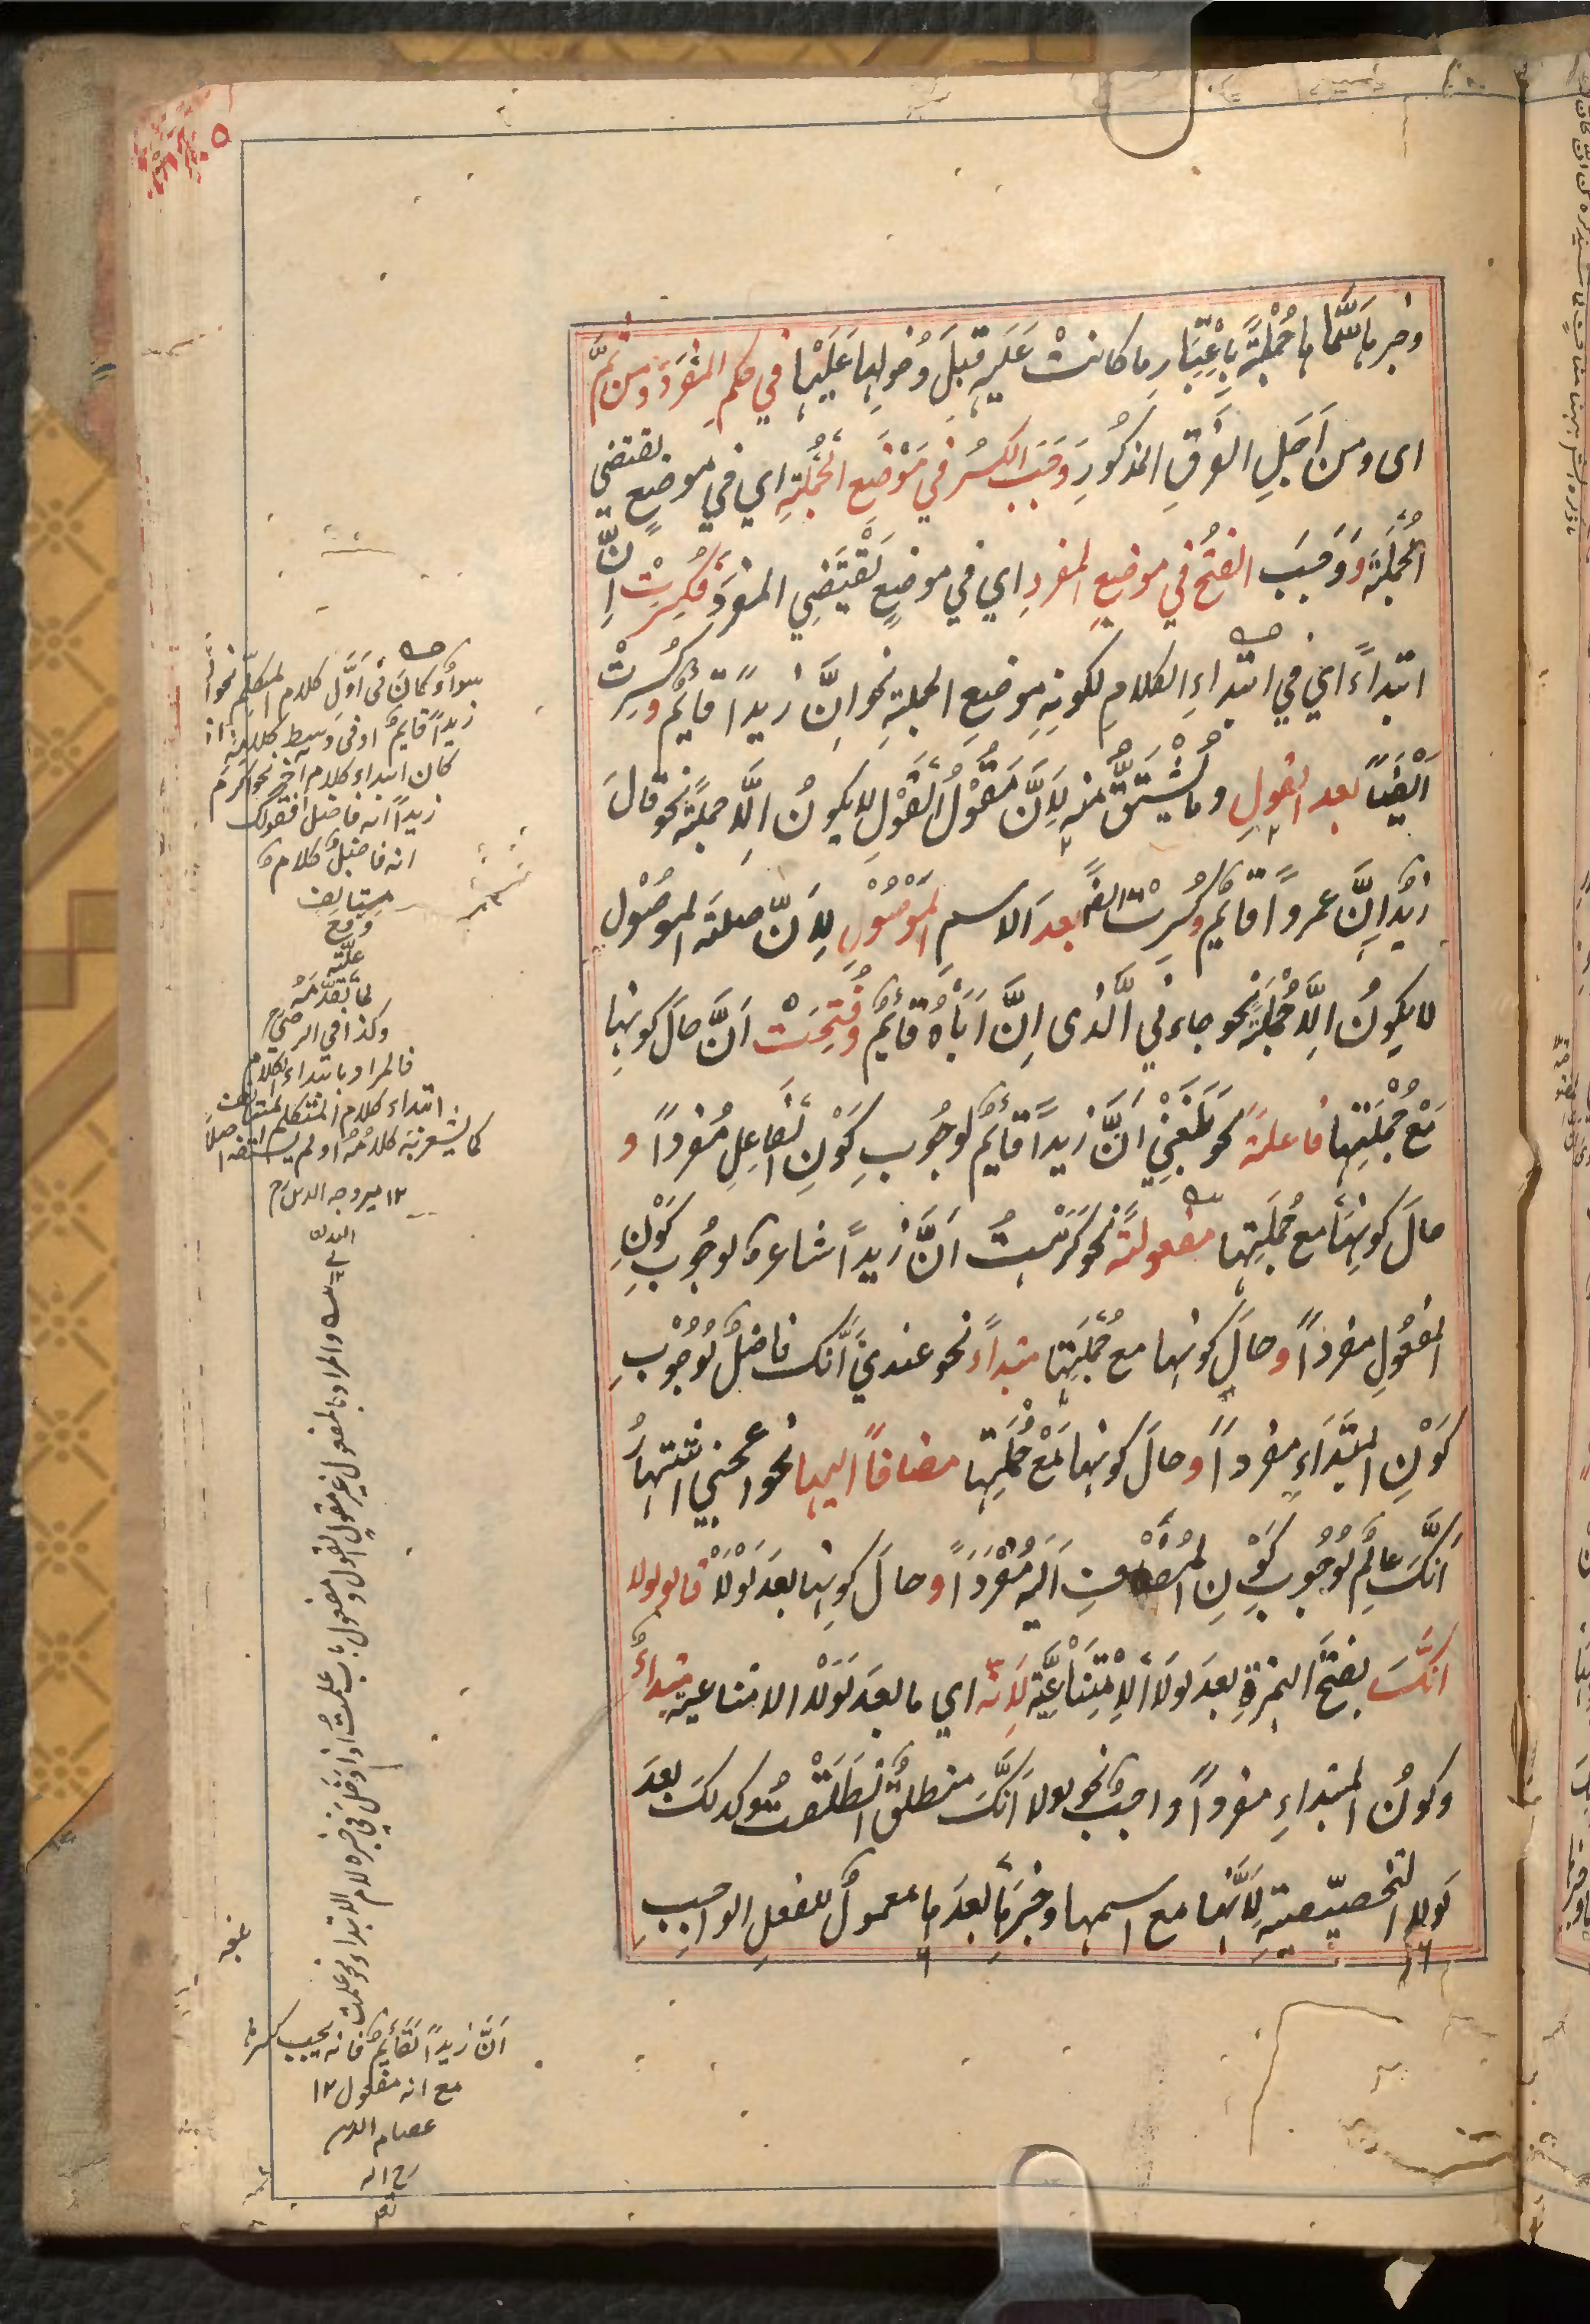 وخبرها سماها جُمْلَةً بِاعْتِبَارِ ما كانتْ عَلَيهِ قبلَ دُخولِها عَلَيْها في حكمِ المفرَدِ ومن ثَمَّ
اى ومن اَجلِ الفرقِ المذكُورِ وَجَبَ الكسرُ في مَوْضِعِ الجُمْلَةِ اي في موضعٍ يقتضي
الجُملَةَ وَوَجَبَ الفتحُ في موضعِ المفردِ اي في موضعٍ يَقْتَضِي المفردَ فكُسِرَتْ اِنَّ
ابتداءً اي في ابتداءِ الكلامِ لكونِهِ موضعِ الجملةِ نحو اِنَّ زيدًا قايمٌ وكُسِرَتْ
اَيْضًا بعد القولِ وما يُشْتَقُّ منه لِاَنَّ مَقُوْلَ القَوْلِ لا يكونُ الَّا جملةً نحو قالَ
زيدٌ اِنَّ عمرواً قايمٌ وكُسِرَتْ ايضًا بعدَ الاسمِ المَوْصُوْلِ لِاَنَّ صلةَ الموصُوْلِ
لا يكونُ الَّا جُمْلَةً نحو جاءني الَّذى اِنَّ اَبَاهُ قَائمٌ وفُتِحَتْ اَنَّ حالَ كونِها
مَعْ جُمْلَتِها فاعلةً نحو بَلَغَنِيْ اَنَّ زيدًا قَائِمٌ لوجُوبِ كَوْنِ الفَاعِلِ مُفردًا و
حالَ كونِهَا مع جُملَتِها مفعولةً نحو كَرِهْتُ اَنَّ زيدًا شاعرٌ لوجُوبِ كَوْنِ
المفعُولِ مفردًا وحالَ كونها مع جُمْلَتِها مبتداءً نحو عندي اَنَّكَ فاضلٌ لوُجُوْبِ
كَوْنِ المبتَدَاءِ مفردًا وحالَ كونها مَعْ جُمْلَتِها مضافًا اليها نحو اعجبني اشتهارُ
اَنَّكَ عالمٌ لوُجُوبِ كَوْنِ المُضَافِ اليهِ مُفْرَدًا وحالَ كونِها بعدَ لَوْلَا قالوا لولا
انَّكَ بفتحِ الهمزةِ بعدَ لولَا الْاِمْتِنَاعِيَّة لِاَنَّه اي ما بعدَ لَوْلَا الامتناعيه مبتداءٌ
وكونُ المبتداءِ مفردًا واجبٌ نحو لولا اَنَّكَ منطلقٌ انْطَلَقْتُ وكذلكَ بعدَ
لَولا التَخصيصيّةِ لِاَنَّها مع اسمها وخبرِها بعدَها معمولٌ للفعلِ الواجبِ
سواءٌ كانَ في اَوَّلِ كلام المتكلّم نحو انَّ
زيدًا قايمٌ او في وسط كلامه اذا
كان ابتداء كلام آخر نحو اكرم
زيدًا انه فاضل فقولك
انه فاضلٌ كلام
مستانف
وقع
علّة
لما تقدّمه
وكذا في الرضي
فالمراد بابتداء الكلام
ابتداء كلام المتكلم
كما يشعر به كلامُهُ
١٢ مير وجه الدين رح
والمراد بالمفعول غير مقول القول ومفعول باب علمت اذا دخل في خبره لام الابتداء نحو علمت
اَنَّ زيدًا لَقَائمٌ فانه يجب كسره
مع انه مفعول ١٢
عصام الدين
رح اله